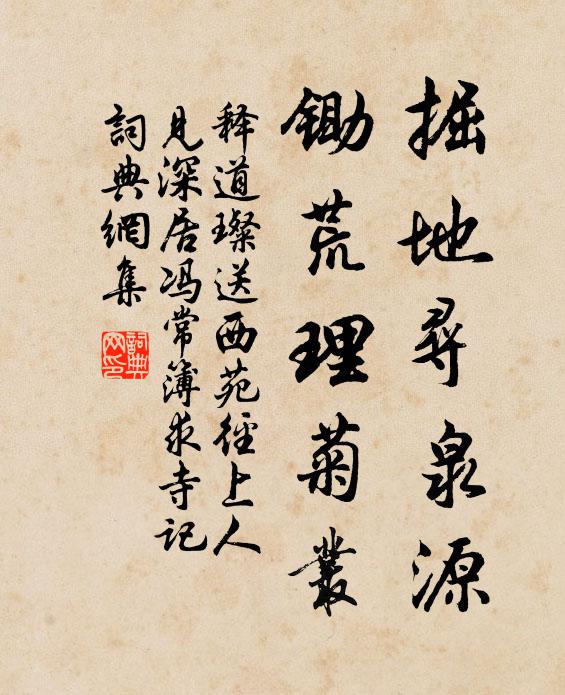 掘地尋泉源
鋤荒理菊叢
释道璨送西苑徑上人
見深居冯常簿求寺记
詞典網集
詞典網印